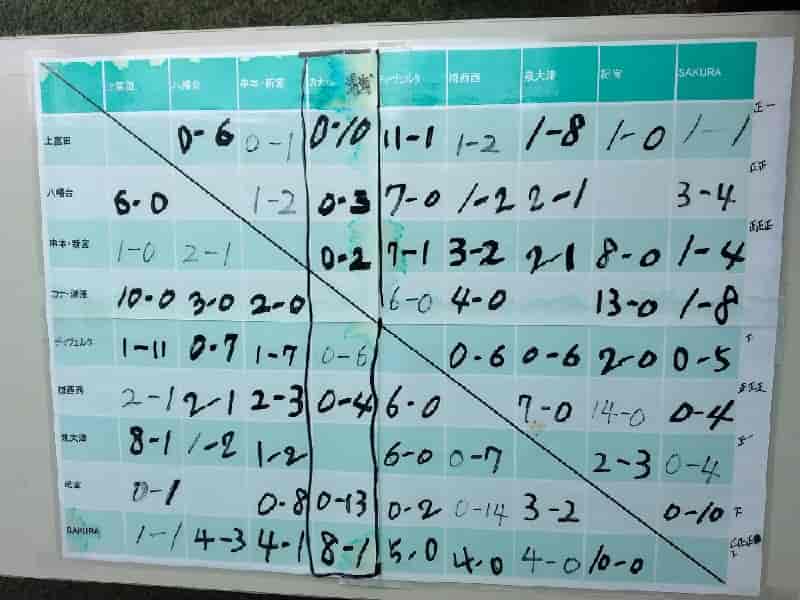 上富田 八幡台 串本・新宮 ディヴェルタ 橋西西 泉大津 紀宝 SAKURA
上富田 0-6 0-1 0-10 11-1 1-2 1-8 1-0 1-1 正一
八幡台 6-0 1-2 0-3 7-0 1-2 2-1 3-4 正正
串本・新宮 1-0 2-1 0-2 7-1 3-2 2-1 8-0 1-4 正正正
10-0 3-0 2-0 6-0 4-0 13-0 1-8
ディヴェルタ 1-11 0-7 1-7 0-6 0-6 0-6 2-0 0-5
2-1 2-1 2-3 0-4 6-0 7-0 14-0 0-4 正正正
泉大津 8-1 1-2 1-2 6-0 0-7 2-3 0-4
紀宝 0-1 0-8 0-13 0-2 0-14 3-2 0-10 下
SAKURA 1-1 4-3 4-1 8-1 5-0 4-0 4-0 10-0